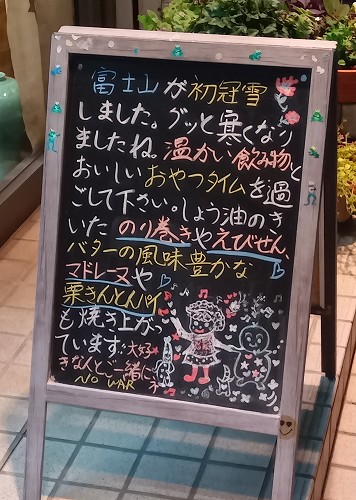 富士山が初冠雪
しました。グッと寒くなり
ましたね。温かい飲み物と
おいしいおやつタイムを過
ごして下さい。しょう油のき
いたのり巻きやえびせん、
バターの風味豊かな
マドレーヌや
栗きんとんパイ
も焼き上がっ
ています♪大好
きな人とご一緒に
NO WAR